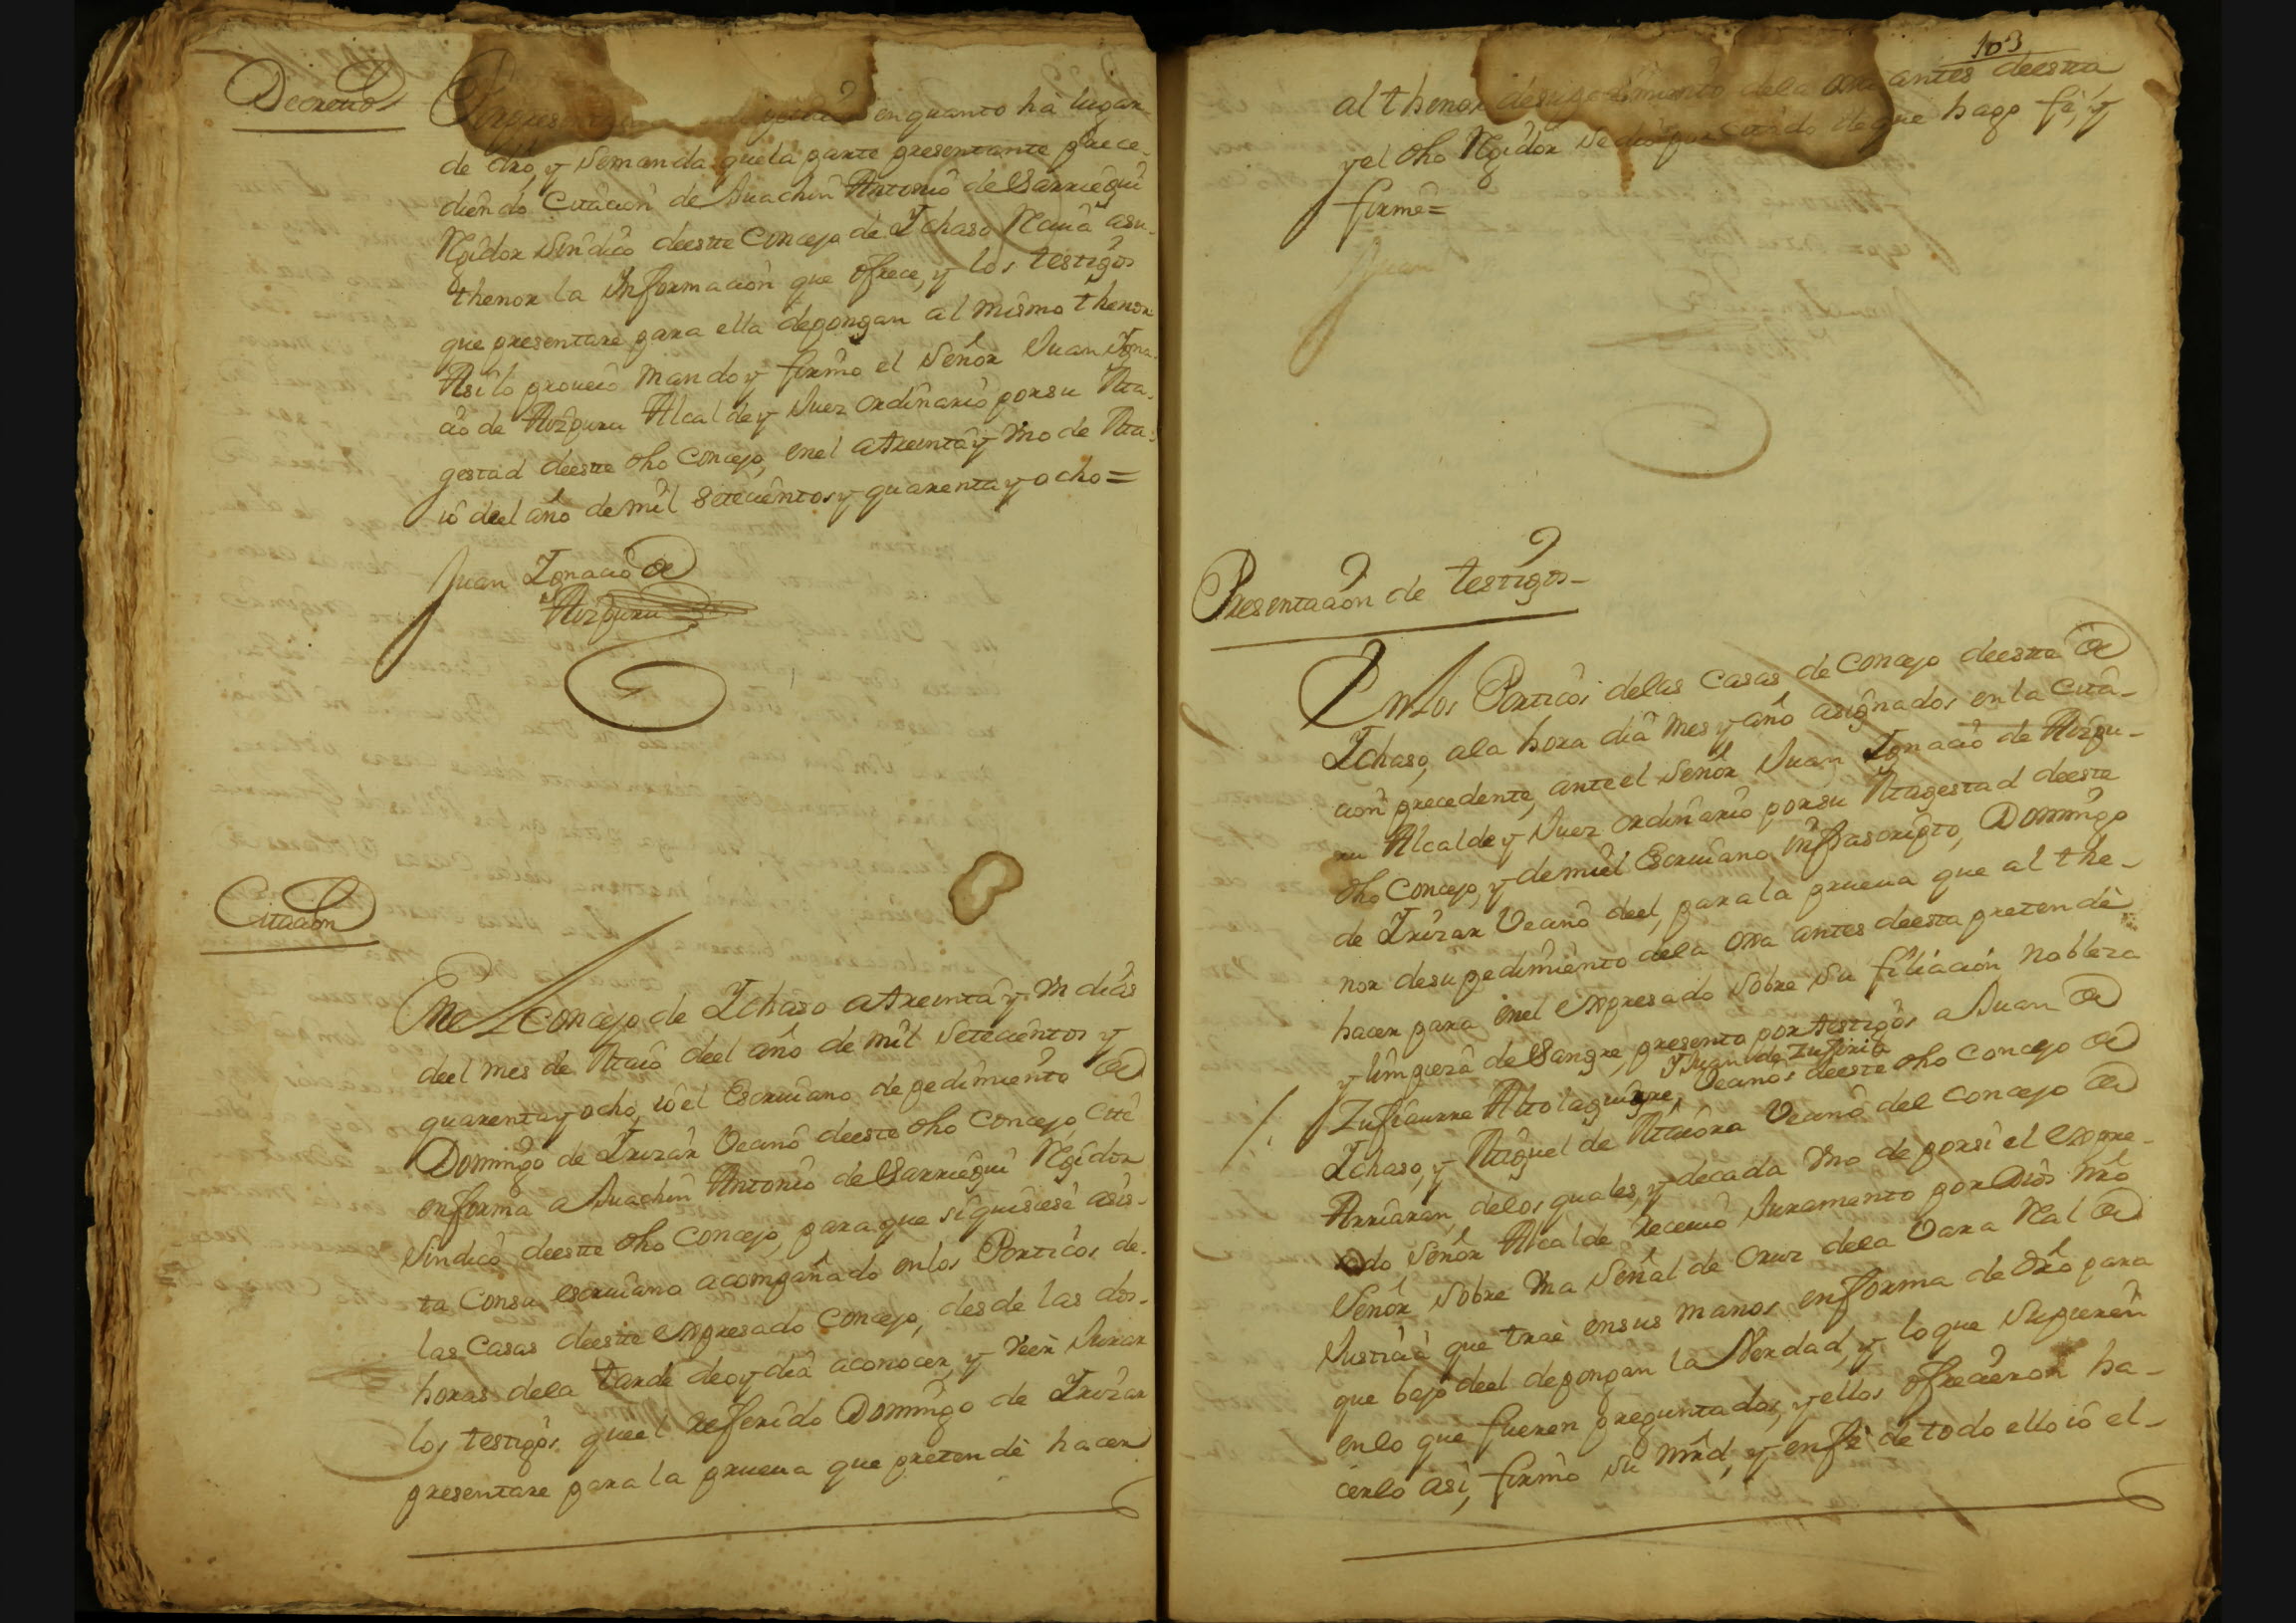 Decreto
Por presentada peticion en quanto ha lugar
de dro, y se manda que la parte presentante prece-
diendo Citacion de Juachin Antonio de Sarriegui
Rejidor Sindico deeste Concejo de Ychaso Reciua asu
thenor la Informacion que ofrece, y los testigos
que presentare para ella depongan al mismo thenor
Asi lo proueio mando y firmo el Señor Juan Igna-
cio de Aizpuru Alcalde y Juez ordinario por su Ma-
gestad deeste dho Concejo, en el a treinta y vno de Ma-
io deel año de mil Setecientos y quarenta y ocho =
Juan Ignacio de
Aizpuru
Citacion
En el Concejo de Ychaso a treinta y vn dias
deel mes de Maio deel año de mil Setecientos y
quarenta y ocho, io el Escriuano de pedimiento de
Domingo de Irizar Vecino deeste dho Concejo, Cite
en forma a Juachin Antonio de Sarriegui Rejidor
Sindico deeste dho Concejo, para que si quisiese asis-
ta con su escriuano acompañado en los Porticos de-
las Casas deeste expresado Concejo, desde las dos-
horas dela tarde de oy dia a conocer, y veer Jurar
los testigos que el referido Domingo de Irizar
presentare para la prueua que pretende hacer
103
al thenor de su pedimiento dela ora antes deesta
y el dho Rejidor se dio por Citado de que hago fe, y
firme =
Presentacion de testigos-
En los Porticos delas Casas de Concejo deeste de
Ychaso, ala hora dia mes y año asignados en la Cita-
cion precedente, ante el Señor Juan Ignacio de Aizpu-
ru Alcalde y Juez ordinario por su Magestad deeste
dho Concejo, y de mi el Escriuano infrascripto, Domingo
de Irizar Vecino deel, para la prueua que al the-
nor de su pedimiento dela ora antes deesta pretende
hacer para en el expresado sobre su filiacion nobleza
y limpieza de Sangre, presento por testigos a Juan de
Y Juan de Zufiria
/. Zufiaurre Altolaguirre, Vecinos deeste dho Concejo de
Ychaso, y Miguel de Vecino del Concejo de
Arriaran, delos quales, y de cada vno de por si el expre-
sado Señor Alcalde Receuio Juramento por Dios nro
Señor sobre vna Señal de Cruz dela Vara Real de
Justicia que trae en sus manos en forma de dro para
que bajo deel depongan la Verdad, y lo que Supieren
en lo que fueren preguntados, y ellos ofrecieron ha-
cerlo asi, firmo su mrd, y en fe de todo ello io el-